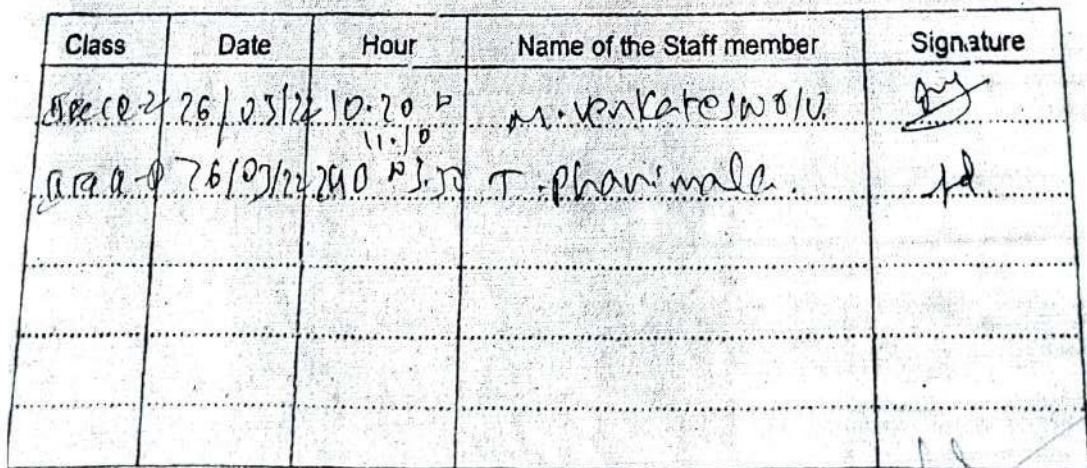 Class Date Hour Name of the Staff member Signature
26/03/22 10.20 M. Venkateswarlu.
11.10
26/03/22 2.40 3.30 T. phanimala.